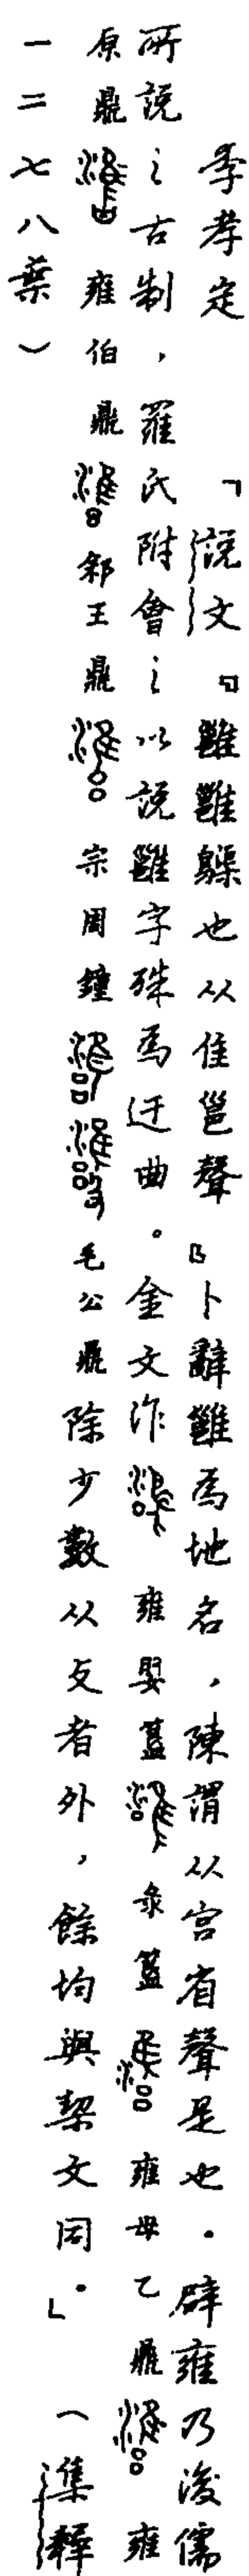 李孝定「說文』雝雝䳿也从隹邕聲』卜辭雝為地名，陳謂从宮省聲是也．辟雍乃後儒
所說之古制，羅氏附會之以說雝字殊為迂曲。金文作 雍娶簋 彔簋 雍母乙鼎 雍
原鼎 雍伯鼎 郳王鼎 宗周鐘 毛公鼎 除少數从攴者外，餘均與契文同．」（集釋
一二七八葉）